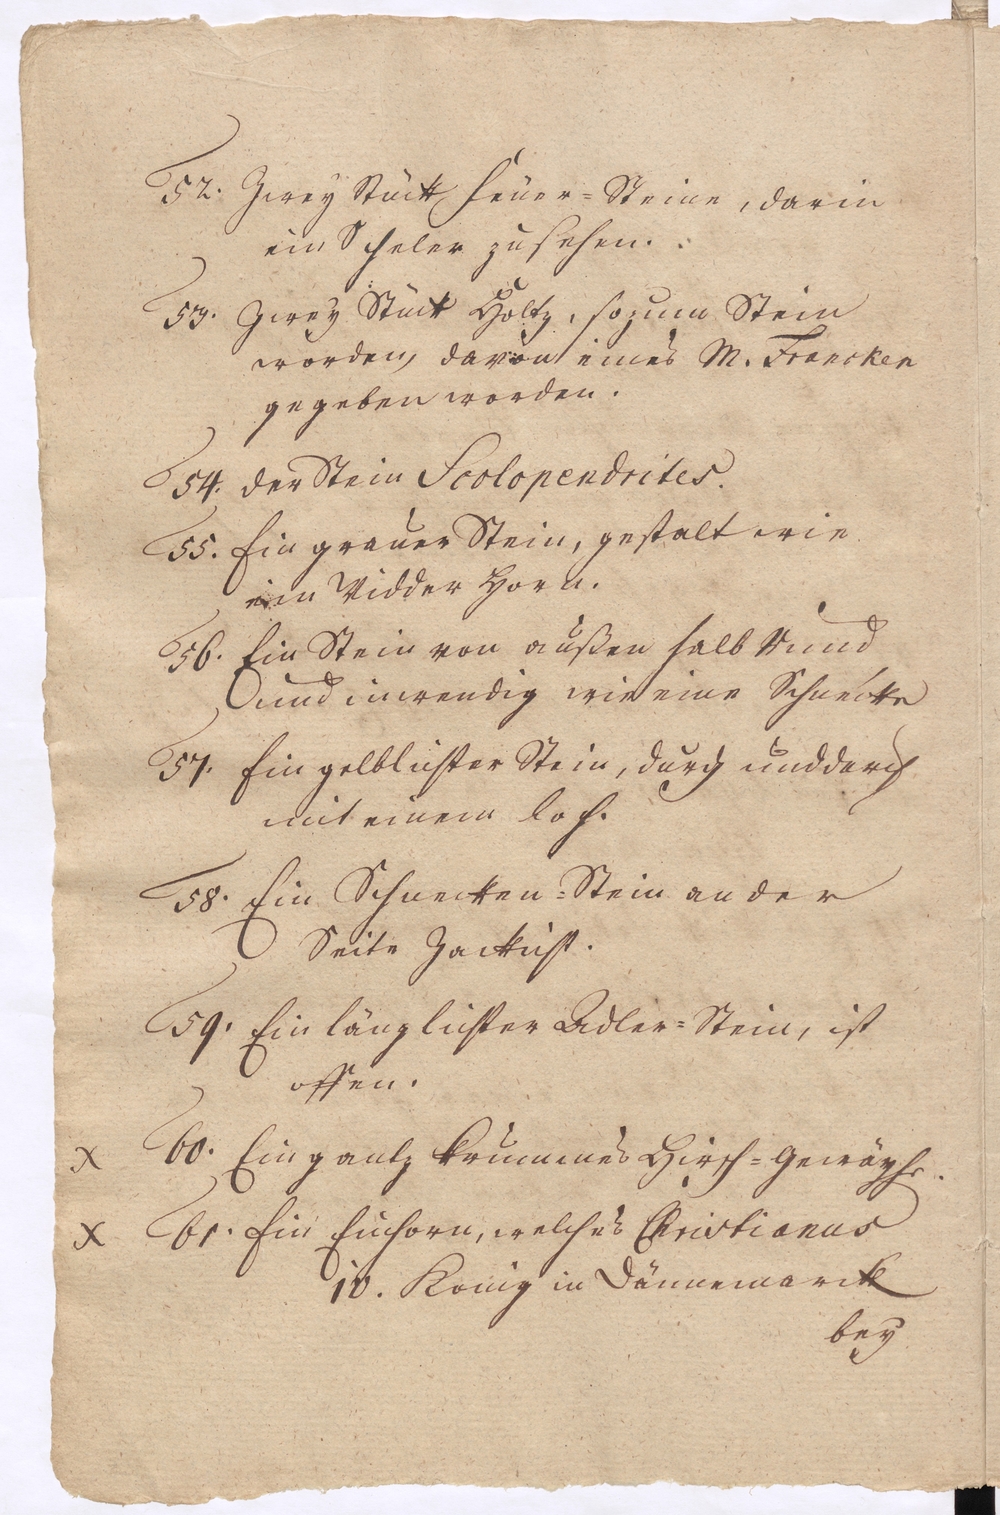 52. Zwey Stück Feüer=Steine, darin
ein Scheler zu sehen.
53. Zwey Stück Holtz, so zum Stein
worden, davon eines M. Francken
gegeben worden.
54. der Stein Scolopendrites.
55. Ein grauer Stein, gestalt wie
ein Widder Horn.
56. Ein Stein von außen halb Rund
und inwendig wie eine Schnecke
57. Ein gelblichter Stein, durch und durch
mit einem Loch.
58. Ein Schnecken=Stein an der
Seite Zackicht.
59. Ein länglichter Adler=Stein, ist
offen.
x 60. Ein gantz krummes Hirsch=Geweyhe.
x 61. Ein Einhorn, welches Christianus
iv. König in Dännemarck
bey